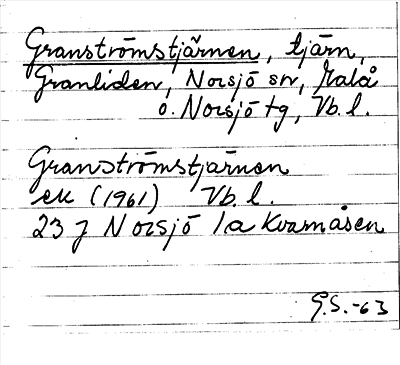 Granströmstjärnen, tjärn,
Granliden, Norsjö sn, Malå
o. Norsjö tg, Vb. l.
Granströmstjärnen
ek (1961) Vb. l.
23 J Norsjö 1a Kvarnåsen
G.S. -63